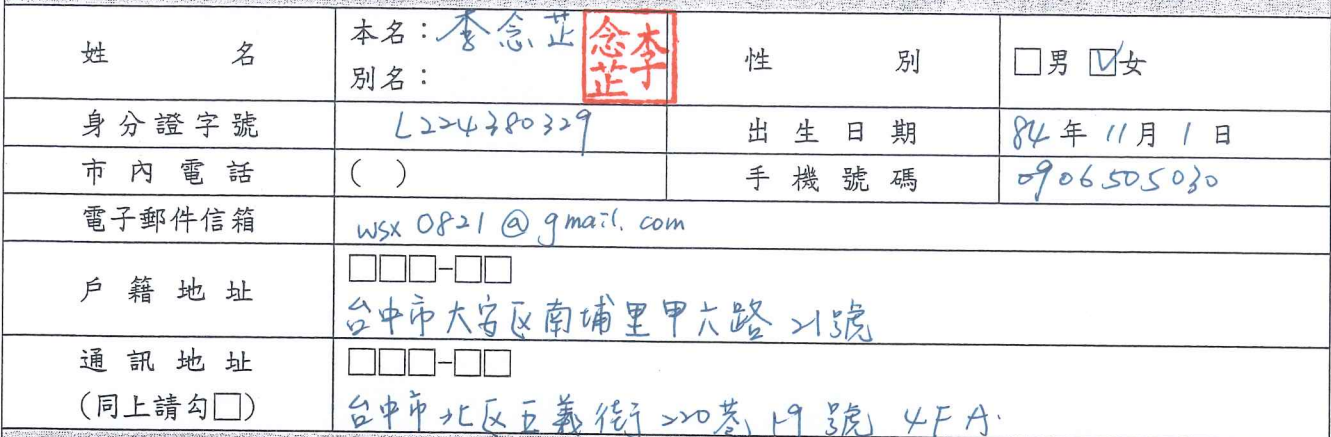 姓名 本名：李念芷 李念芷 性別 □男 ☑女
別名：
身分證字號 L224380329 出生日期 84年11月1日
市內電話 ( ) 手機號碼 0906505030
電子郵件信箱 wsx0821@gmail.com
戶籍地址 □□□-□□
台中市大安区南埔里甲六路21號
通訊地址 □□□-□□
(同上請勾□) 台中市北区五義街220巷19號 4F A.